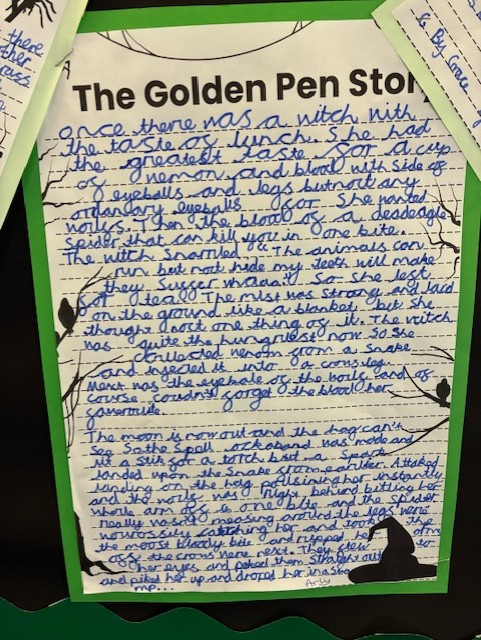 there
The Golden Pen Stor
& By Grace
once there was a witch with
the taste of lunch. She had
the greatest taste for a cup
of venom and blood with side of
eyeballs and legs but not any
ordanlary eyeballs for She wanted
wolfs. Then the blood of a deadeagle
Spider that can kill you in one bite.
The witch Snarrled: The animals can
run but not hide my teeth will make
they Sugger So she left
for tea. The mist was Strong and laid
on the ground like a blanket but she
thought noct one thing of it. The witch
was quite the hungruest now So She
collected venom from a Snake
and injected it into a crows leg.
Next was the eyebale of the wolfs and of
course couldn't forget the blood her
faverouite.
The moon is now out and the hag can't
See So the Spell was made and
lit a Stik for a totch but a Spark
landed upon the Snake from earlier. Attaked
the hag poissining her instantly
and the wolfs was right behind bitting her
whole arm off in one bite and the Spider
really wasn't around the legs were
catching her and took the
the most bloody bite and ripped her
off the crows were next. They flew to
her eyes and peked them Straight out
and piked her up and droped her in a
Arly